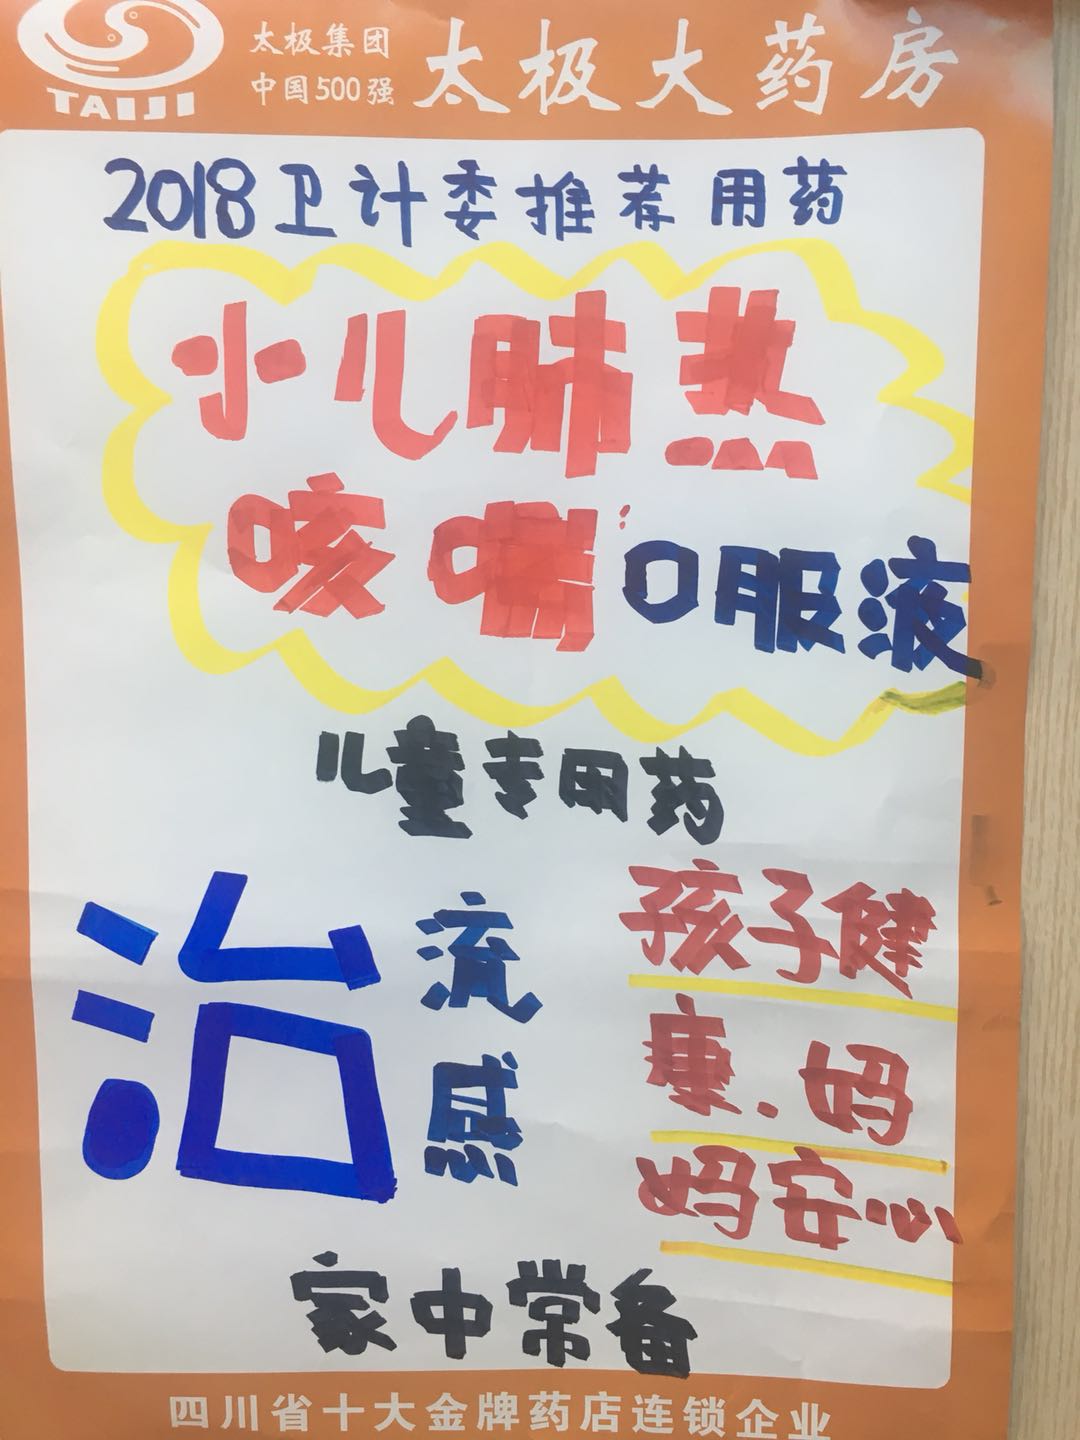 TAIJI
太极集团
中国500强
太极大药房
2018卫计委推荐用药
小儿肺热
咳喘口服液
儿童专用药
治流感
孩子健
康.妈
妈安心
家中常备
四川省十大金牌药店连锁企业